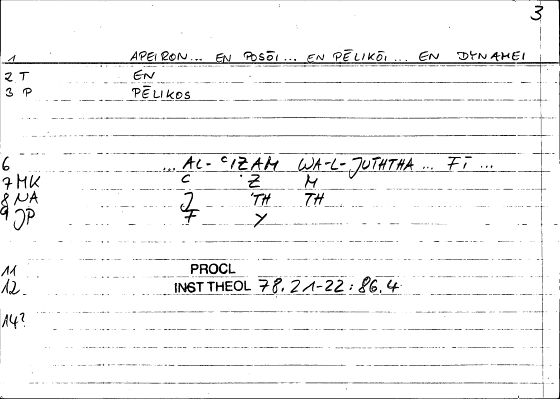 3
1 APEIRON... EN POSŌI... EN PĒLIKŌI... EN DYNAMEI
2 T EN
3 P PĒLIKOS
6 ... AL-ʿIẒAM WA-L-JUTHTHA ... FĪ ...
7 MK ʿ Ẓ M
8 NA J TH TH
9 JP F Y
11 PROCL
12 INST THEOL 78.21-22: 86.4
14?